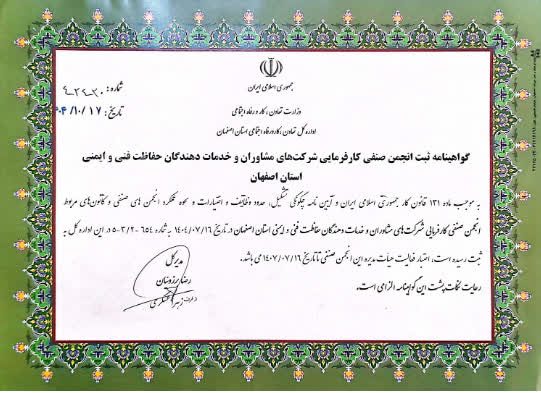 جمهوری اسلامی ایران
شماره:
تاریخ: ۱۴۰۴/۱۰/۱۷
وزارت تعاون، کار و رفاه اجتماعی
اداره کل تعاون، کار و رفاه اجتماعی استان اصفهان
گواهینامه ثبت انجمن صنفی کارفرمایی شرکت‌های مشاوران و خدمات دهندگان حفاظت فنی و ایمنی
استان اصفهان
به موجب ماده ۱۳۱ قانون کار جمهوری اسلامی ایران و آیین نامه چگونگی تشکیل، حدود وظایف و اختیارات و نحوه عملکرد انجمن های صنفی و کانون‌های مربوط
انجمن صنفی کارفرمایی شرکت‌های مشاوران و خدمات دهندگان حفاظت فنی و ایمنی استان اصفهان در تاریخ ۱۴۰۴/۰۷/۱۶ به شماره ۶۵۴-۵-۳/۲ در این اداره کل به
ثبت رسیده است، اعتبار فعالیت هیأت مدیره این انجمن صنفی تا تاریخ ۱۴۰۷/۰۷/۱۶ می باشد.
رعایت نکات پشت این گواهینامه الزامی است.
مدیرکل